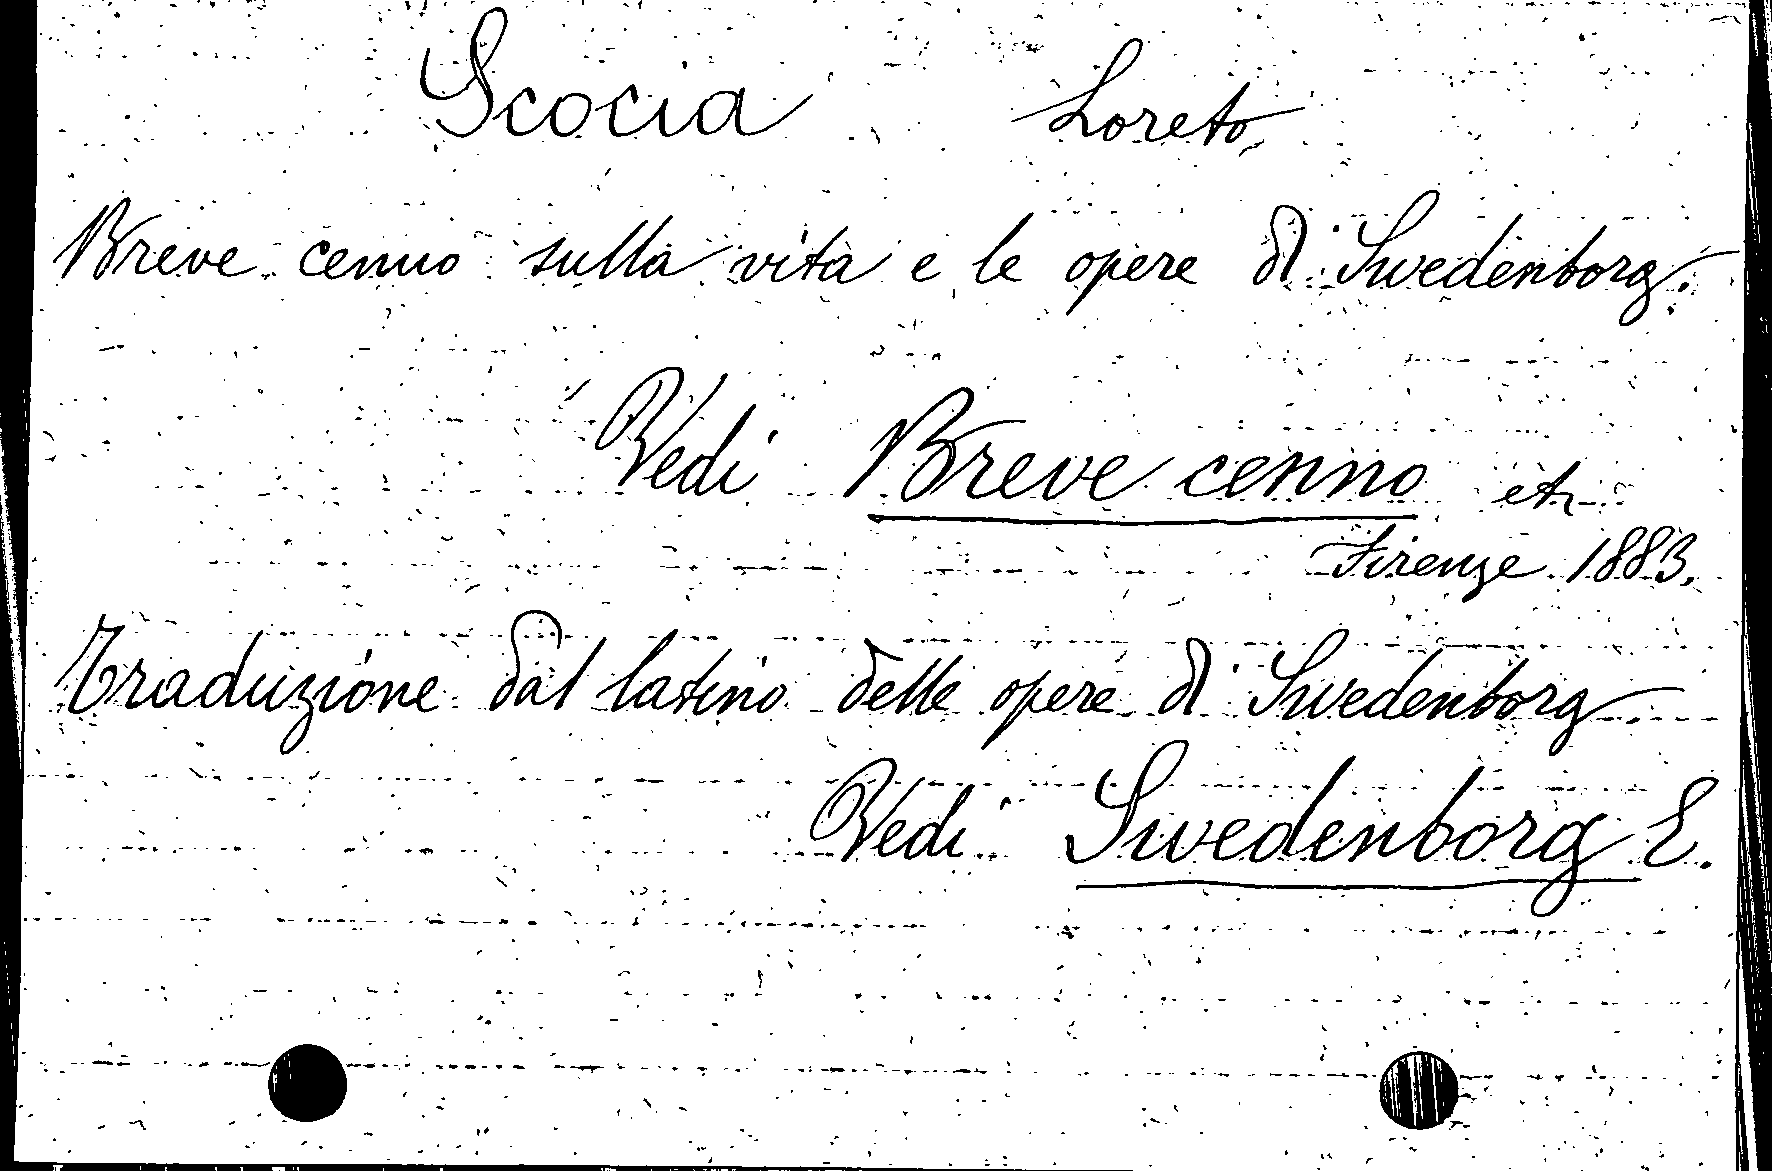 Scocia Loreto,
Breve cenno sulla vita e le opere di Swedenborg.
Vedi Breve cenno etc.
Firenze 1883.
Traduzione dal latino delle opere di Swedenborg
Vedi Swedenborg E.